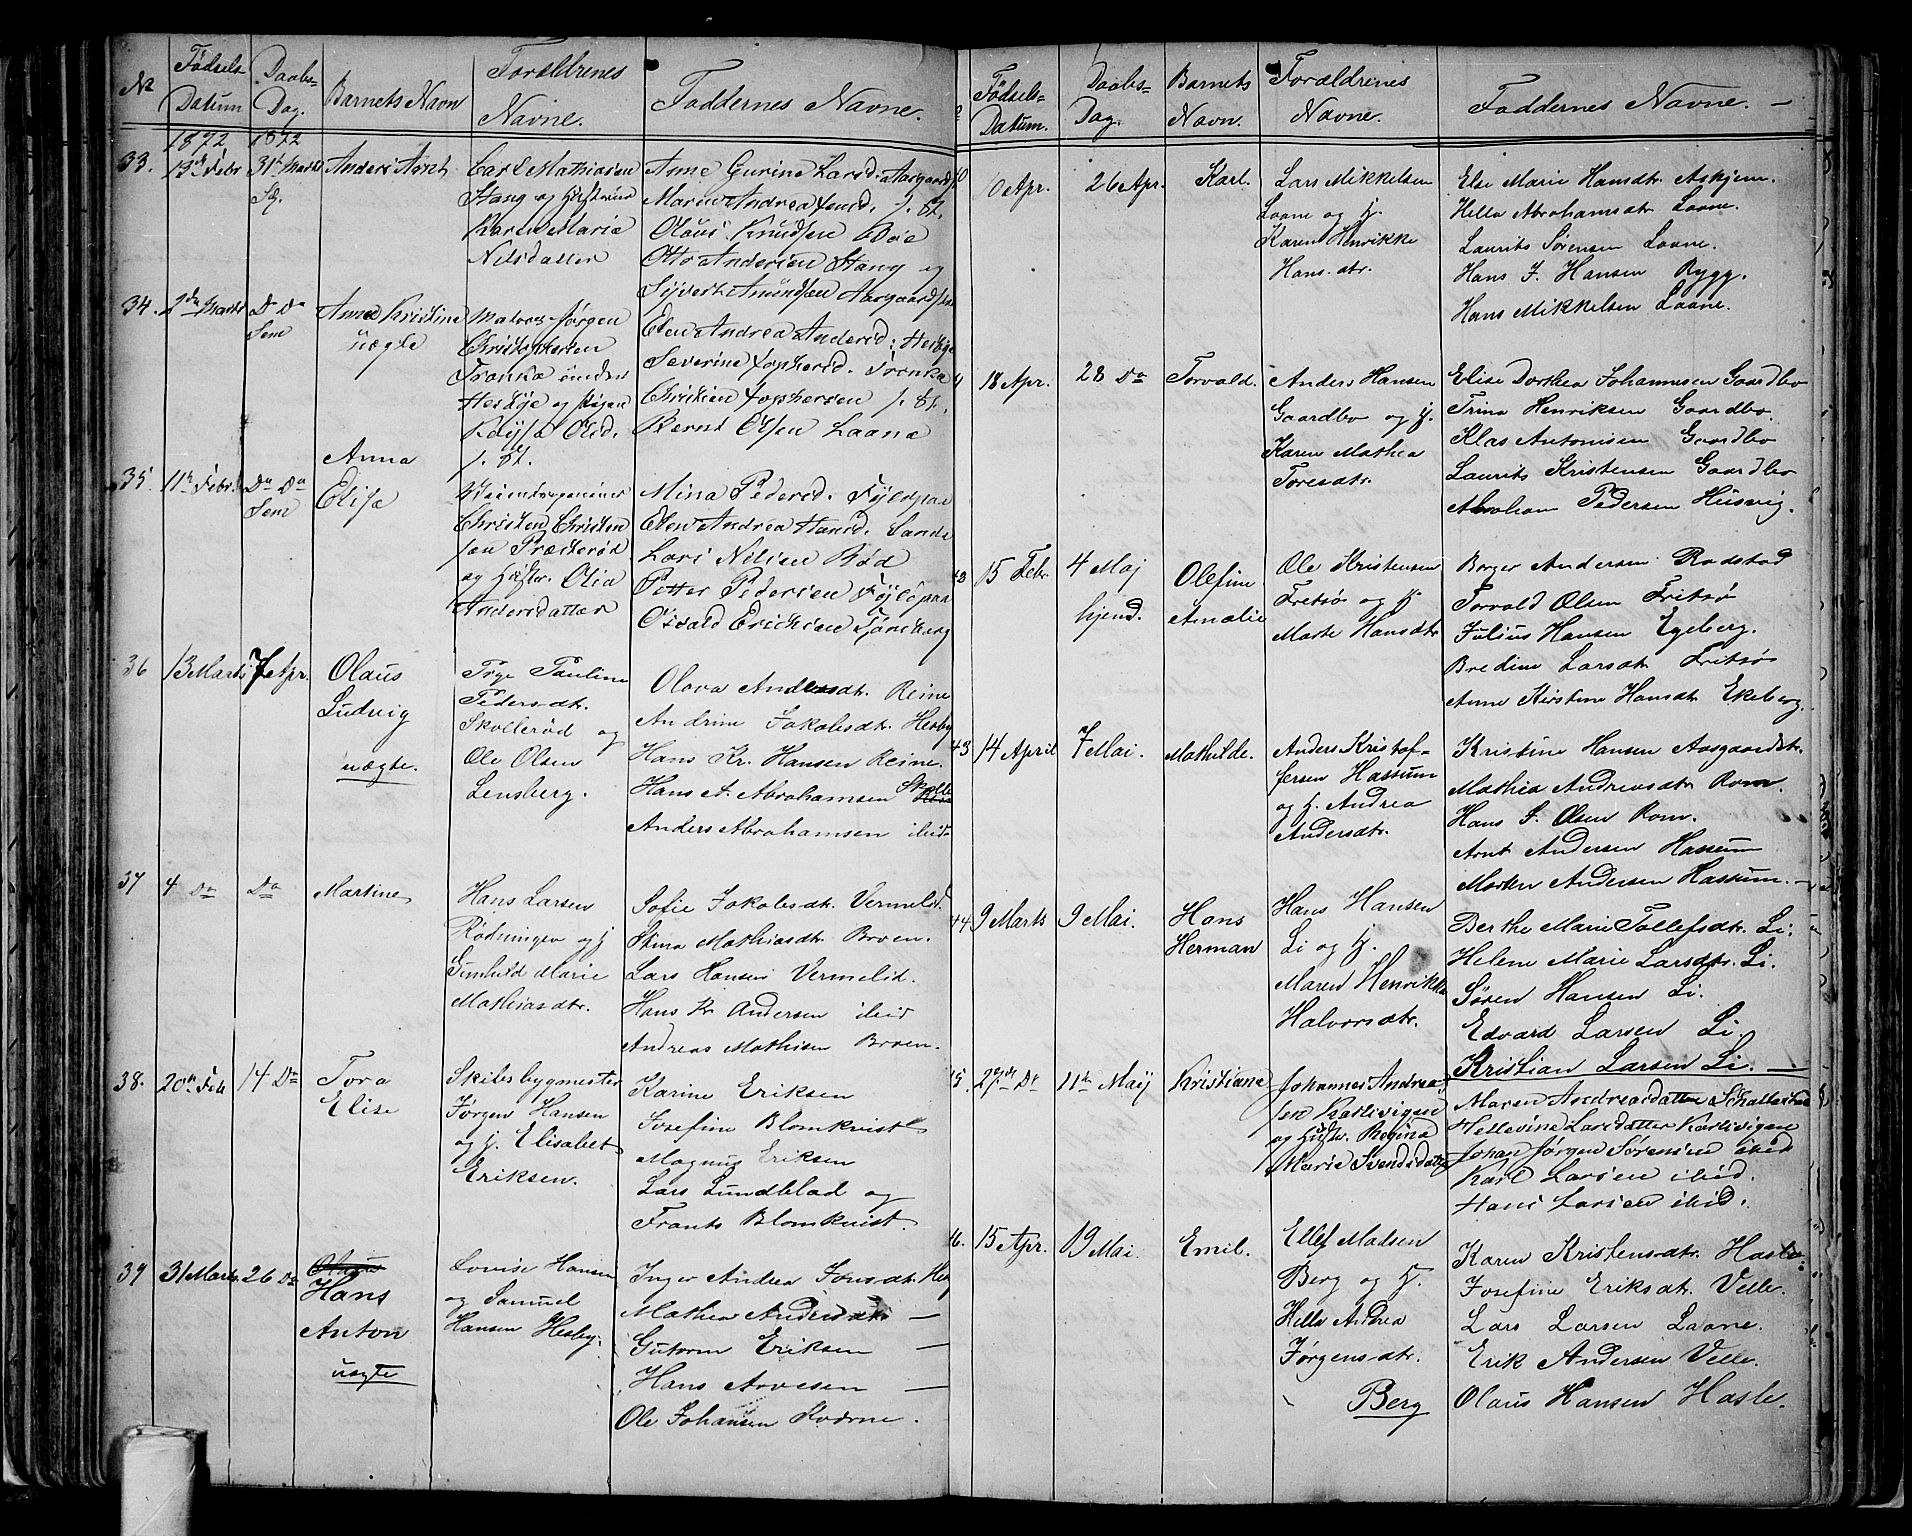 No
Fødsels-
Datum
Daabs-
Dag.
Barnets Navn
Forældrenes
Navne.
Faddernes Navne.
1872
1872
33.
19de Febr
31te Marts
Sg.
Anders Arnt
Carl Mathiasen
Hang og Hustrue
Karen Marie
Nilsdatter
Anne Gurine Larsd. Aasgaard
Maren Andrea
Olaus Knudsen Bøe
Otto Andersen Hang og
Syvert Amundsen Aasgaard
34.
2den Marts
Do Do
Sem
Anne Kristine
uægte
Matros Jørgen
Christophersen
Tranka
og Pigen
Olsd.
Elen Andrea Andersd.
Severine Tophersd. Tranka
Christien Tophersen
Bernt Olsen Laane
35.
11te Febr.
Do Do
Sem
Anna
Elise
Christen Christen
sen Præsterød
og Hustr. Olia
Andersdatter
Mina Pedersd.
Elen Andrea Hansd. Sande
Lars Nilsen Bød
Petter Pedersen
Osvald Erichsen Tønsberg
36
13 Marts
7 Apr.
Olaus
Ludvig
uægte.
Pige Pauline
Pedersdt.
Skollerød og
Ole Olsen
Lensberg.
Olava Andersdt. Reine
Andrine Jakobsdt. Hesby
Hans Kr. Hansen Reine.
Hans A. Abrahamsen
Anders Abrahamsen ibid
37
4 Do
Do
Martine
Hans Larsen
Rødningen og H
Gunhild Marie
Mathiasdtr.
Sofie Jakobsdt. Vermelid.
Stina Mathiasdtr Broen.
Lars Hansen Vermelid.
Hans Kr Andersen ibid
Andreas Mathisen Broen.
38.
20de Feb
14 Do
Tora
Elise
Skibsbygmester
Jørgen Hansen
og H. Elisabet
Eriksen.
Karine Eriksen
Josefine Blomkvist
Magnus Eriksen
Lars Lundblad og
Frants Blomkvist.
39
31 Marts
26 Do
Hans
Anton
uægte
Lovise Hansen
og Samuel
Hansen Hesby.
Inger Andrea Jonsdt.
Mathea Andersdt. —
Gutorm Eriksen —
Hans Arvesen —
Ole Johansen Kværne.
Fødsels-
Datum.
Daabs-
Dag.
Barnets
Navn.
Forældrenes
Navne.
Faddernes Navne. —
10 Apr.
26 Apr.
Karl.
Lars Mikkelsen
Laane og H.
Karen Henrikke
Hans-dtr.
Else Marie Hansdtr Askjem.
Helle Abrahamsdtr Laane.
Laurits Sørensen Laane.
Hans J. Hansen Rygg.
Hans Mikkelsen Laane.
18 Apr.
28 Do
Torvald.
Anders Hansen
Gaardbo og H.
Karen Mathea
Toresdtr.
Elise Dorthea Johannesen Gaardbo
Trina Henriksen Gaardbo.
Klas Antonisen Gaardbo
Laurits Kristensen Gaardbo
Abraham Pedersen Husvig.
15 Febr.
4 Maj
hjemd.
Olefine
Amalie
Ole Kristensen
Fritsøe og H
Marte Hansdtr
Borger Andersen Rodstad
Torvald Olsen Fritsø
Julius Hansen Egeberg.
Bredine Larsdtr Fritsøe
Anne Kirstine Hansdtr Ekeberg.
43
14 April
7 Mai.
Mathilde.
Anders Kristof-
fersen Hassum
og H. Andrea
Andersdtr.
Kristine Hansen Aasgaardstr.
Mathea Andreasdtr. Rom.
Hans J. Olsen Rom.
Arnt Andersen Hassum
Morten Andersen Hassum. —
44
9 Marts
9 Mai.
Hans
Herman
Hans Hansen
Li og H.
Maren Henrikke
Halvorsdtr.
Berthe Marie Tollefsdtr. Li.
Helene Marie Larsdtr. Li.
Søren Hansen Li.
Edvard Larsen Li.
Kristian Larsen Li. —
15.
27de Do
11te Maij
Kristiane
Johannes Andrea
sen Karlsvigen
og Hustr. Regine
Marie Svendsdatter
Maren Andreasdatter
Hellevine Larsdatter Karlsvigen
Johan Jørgen Sørensen ibid
Karl Larsen ibid.
Hans Larsen ibid.
46.
15 Apr.
19 Mai.
Emil.
Ellef Madsen
Berg og H.
Helle Andrea
Jørgens-dtr.
Berg
Karen Kristens-dtr. Hasle.
Josefine Eriksdtr. Velle.
Lars Larsen Laane.
Erik Andersen Velle.
Olaus Hansen Hasle.